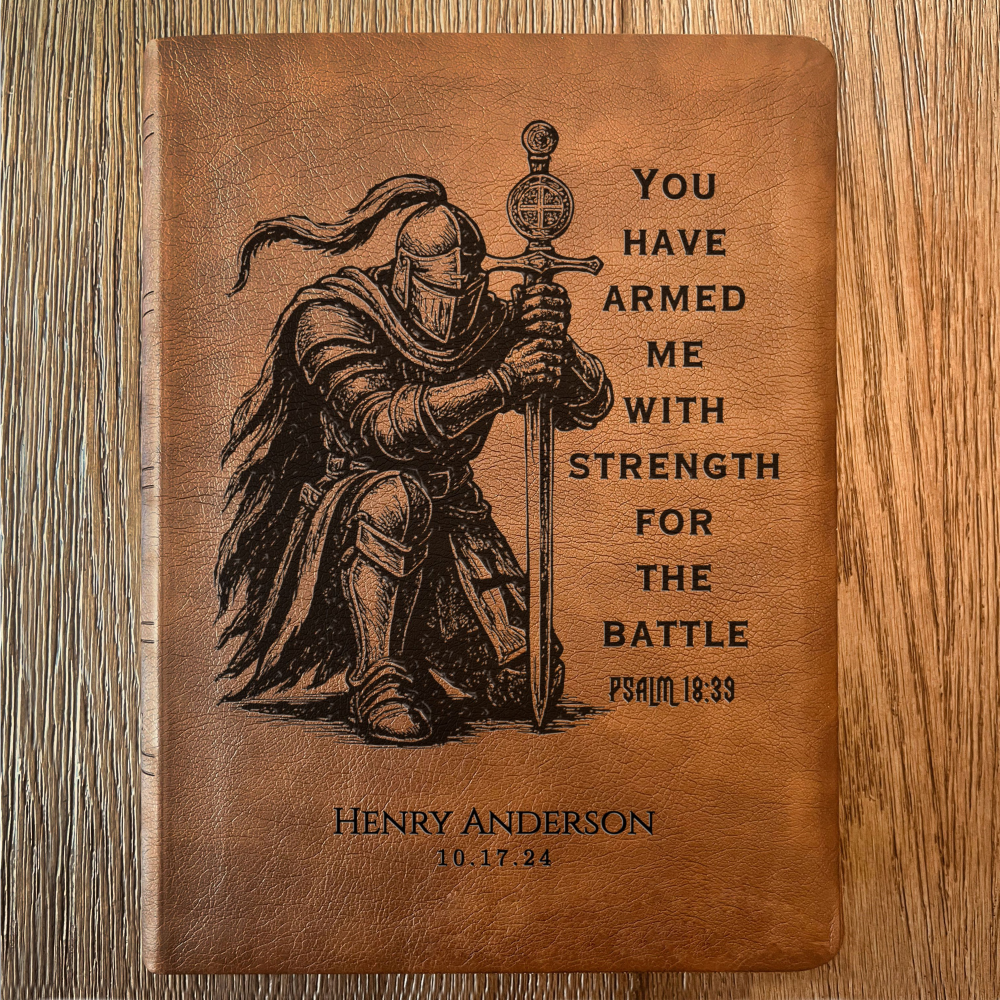 You
HAVE
ARMED
ME
WITH
STRENGTH
FOR
THE
BATTLE
PSALM 18:39
HENRY ANDERSON
10.17.24